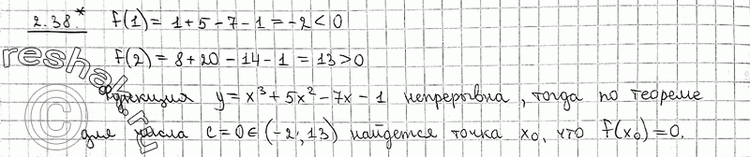 2.38.* f(1) = 1+5-7-1 = -2 < 0
f(2) = 8+20-14-1 = 13 > 0
Функция y = x³ + 5x² - 7x - 1 непрерывна, тогда по теореме
для числа c = 0 ∈ (-2; 13) найдется точка x₀, что f(x₀) = 0.
reshak.ru
©